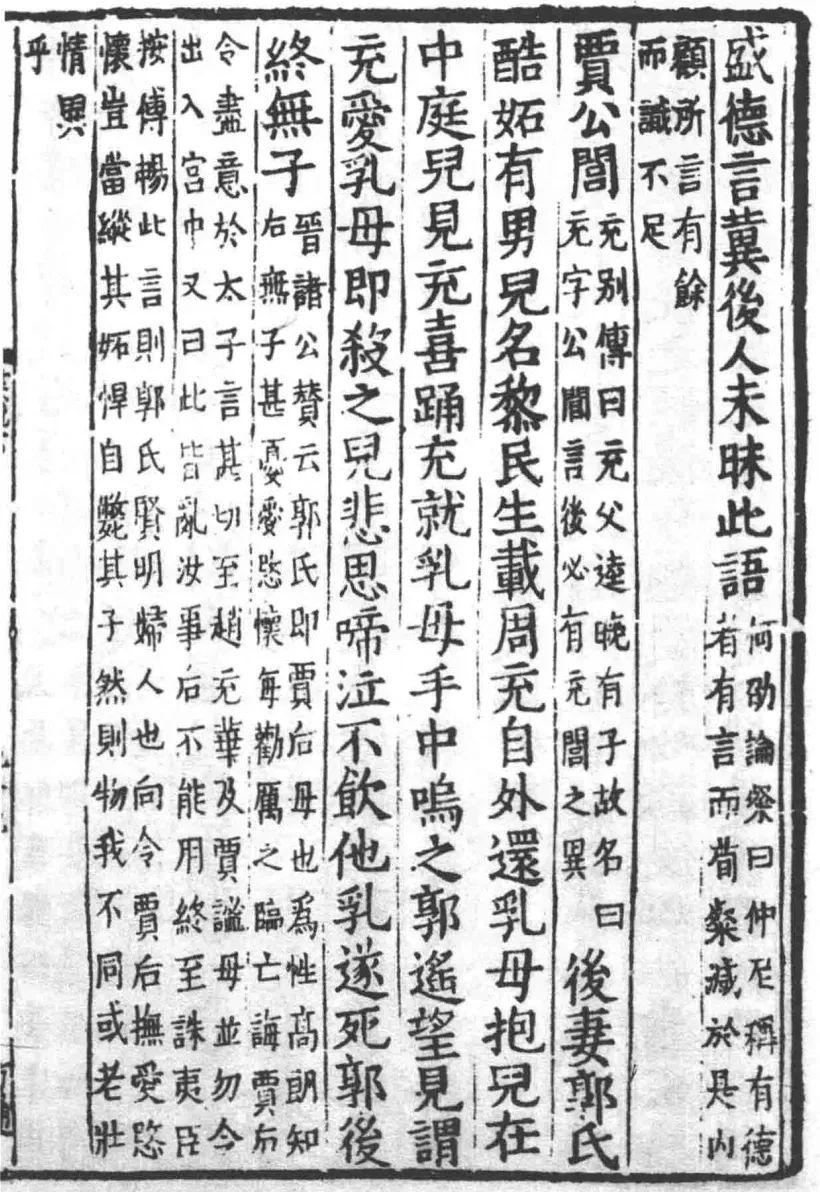 盛德言冀後人未昧此語何劭論粲曰仲尼稱有德
者有言而荀粲減於是內
顧所言有餘
而識不足
賈公閭充別傳曰充父逵晚有子故名曰
充字公閭言後必有充閭之異後妻郭氏
酷妬有男兒名黎民生載周充自外還乳母抱兒在
中庭兒見充喜踊充就乳母手中嗚之郭遙望見謂
充愛乳母即殺之兒悲思啼泣不飲他乳遂死郭後
終無子晉諸公贊云郭氏即賈后母也為性高朗知
后無子甚憂愛愍懷每勸厲之臨亡誨賈后
令盡意於太子言其切至趙充華及賈謐母並勿令
出入宮中又曰此皆亂汝事后不能用終至誅夷臣
按傅楊此言則郭氏賢明婦人也向令賈后撫愛愍
懷豈當縱其妬悍自斃其子然則物我不同或老壯
情異
乎